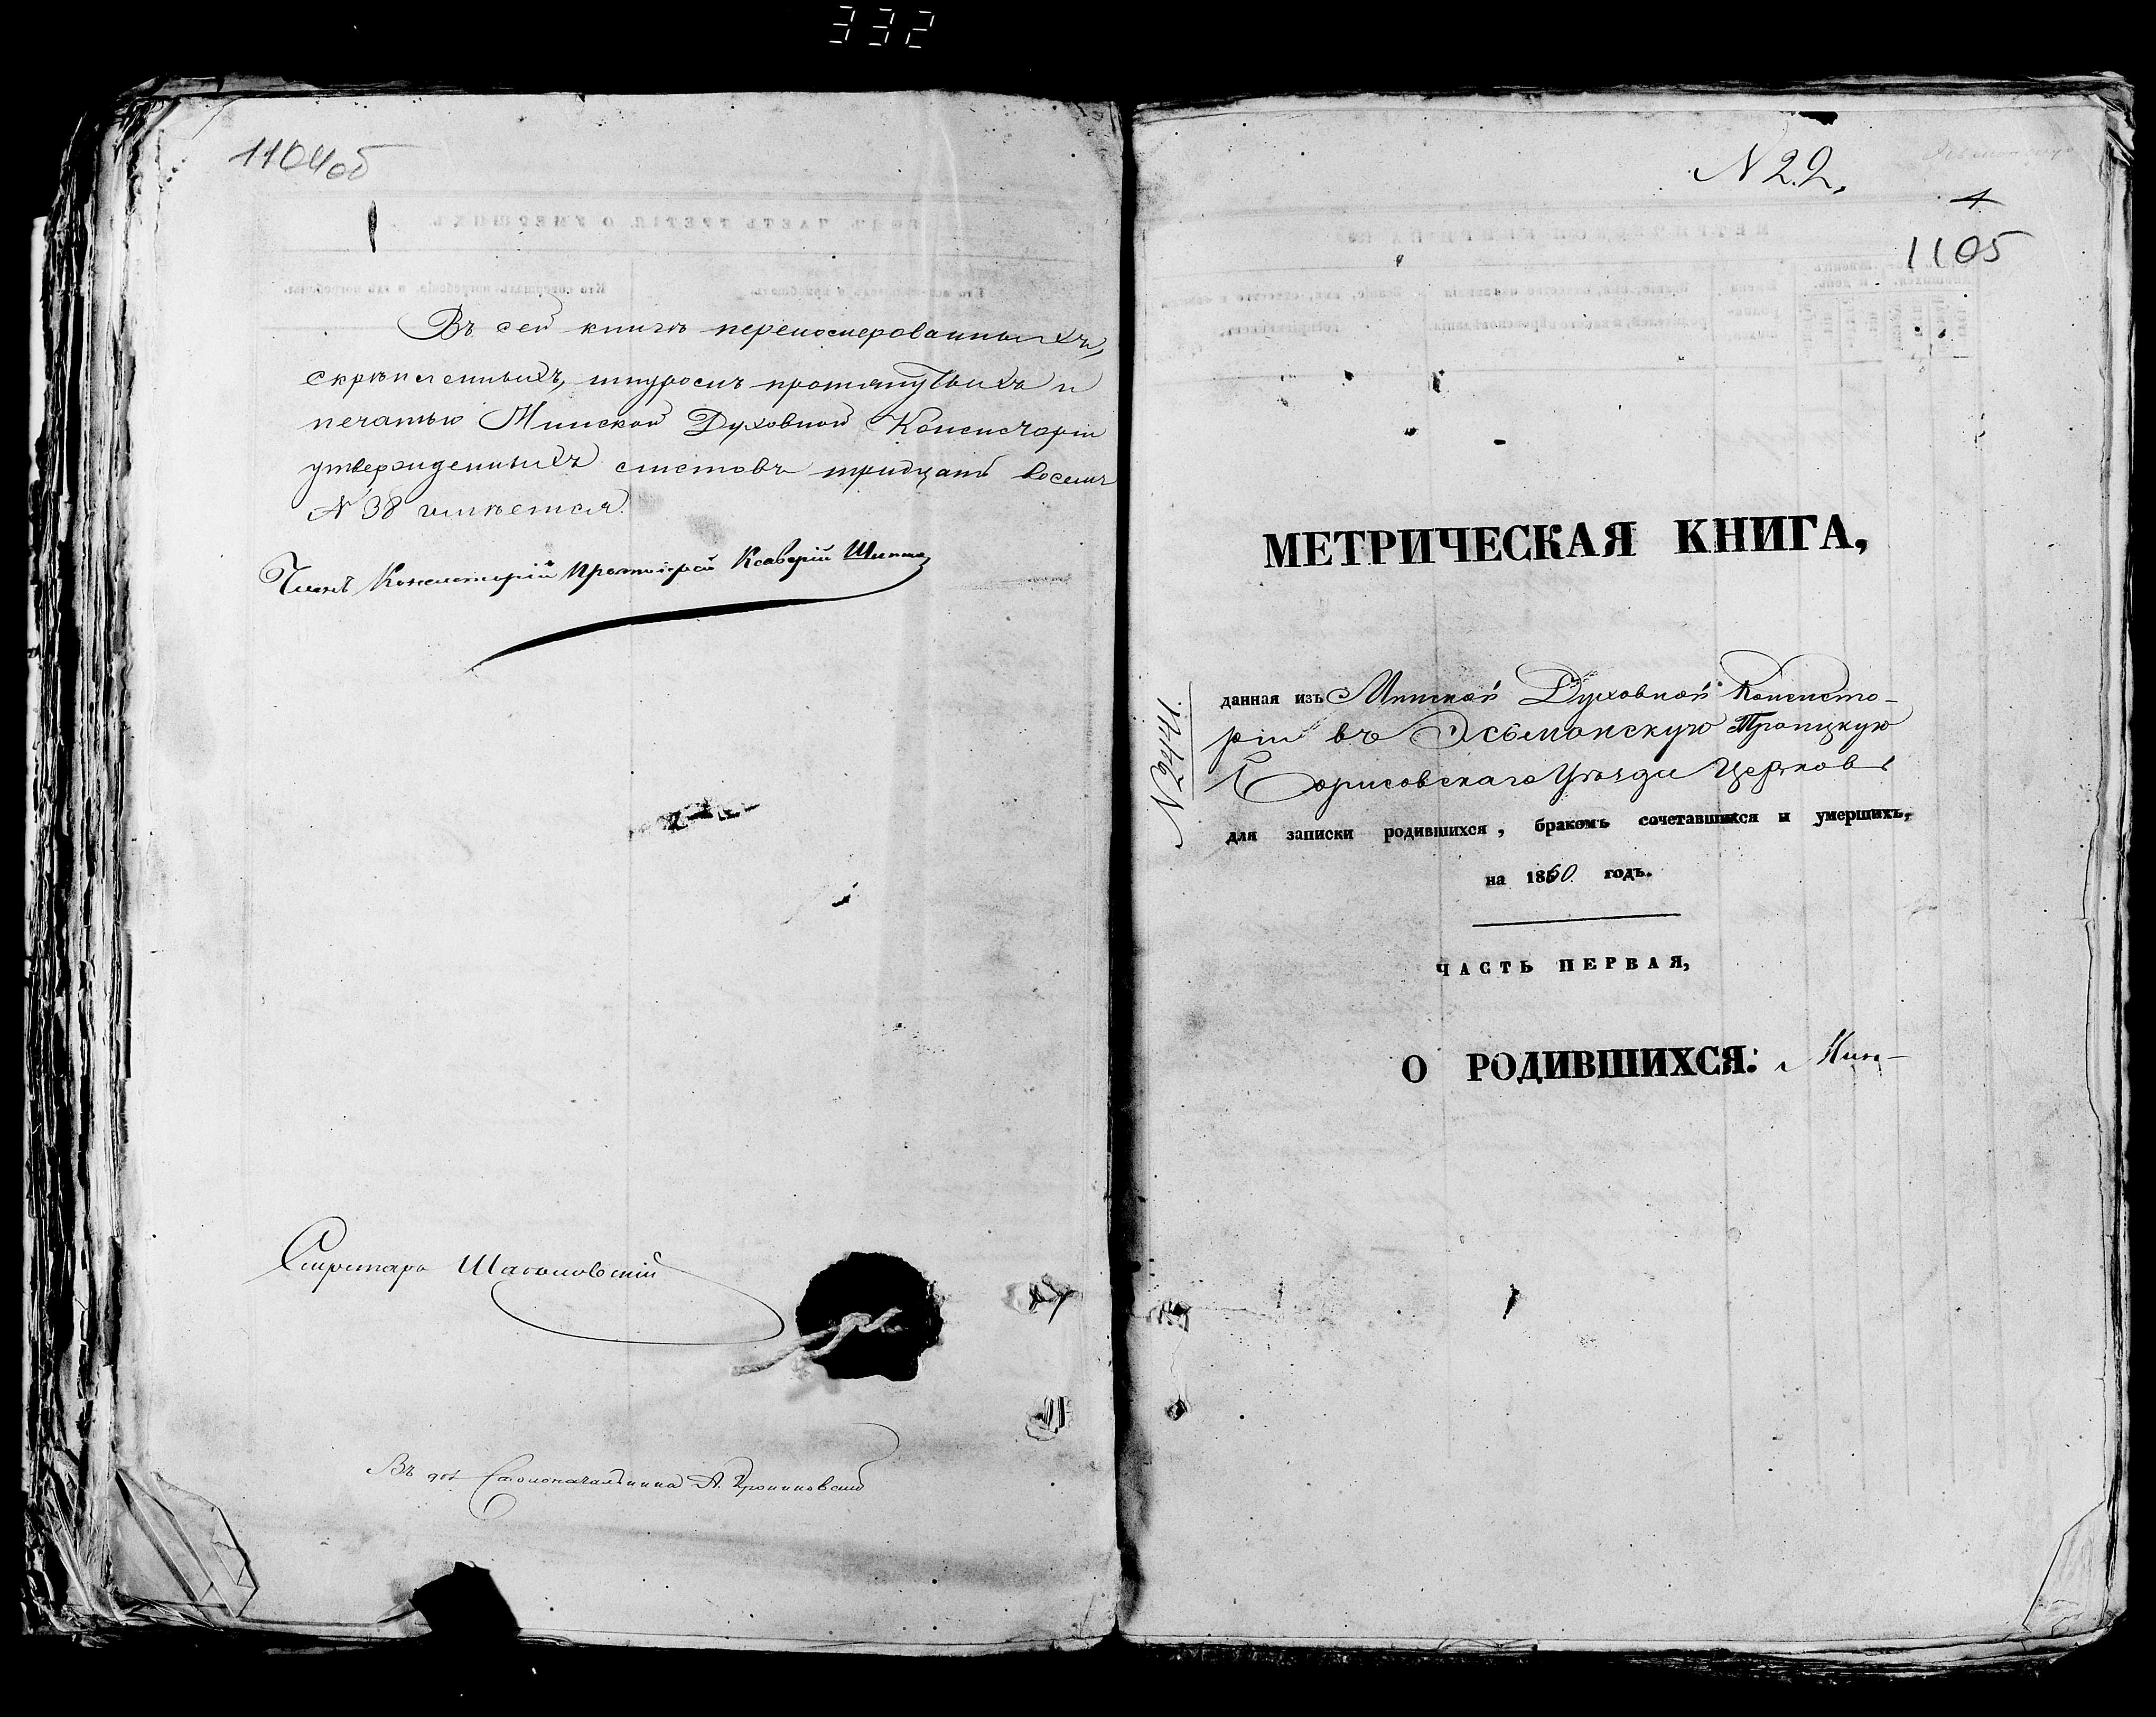 332
1104об
Въ сей книгѣ перенумерованныхъ,
скрѣпленныхъ, шнуромъ протянутыхъ и
печатью Минской Духовной Консисторіи
утвержденныхъ листовъ тридцать восемь
№ 38 имѣется.
Членъ Консисторіи Протоіерей Ксаверій
Секретарь
Въ дол. Столоначальника А.
№ 22.
1
1105
МЕТРИЧЕСКАЯ КНИГА,
№ 2441.
данная изъ Минской Духовной Консисто-
ріи въ Эсьмонскую Троицкую
Борисовскаго Уѣзда Церковь
для записки родившихся, бракомъ сочетавшихся и умершихъ,
на 1860 годъ.
ЧАСТЬ ПЕРВАЯ,
О РОДИВШИХСЯ: Мин-